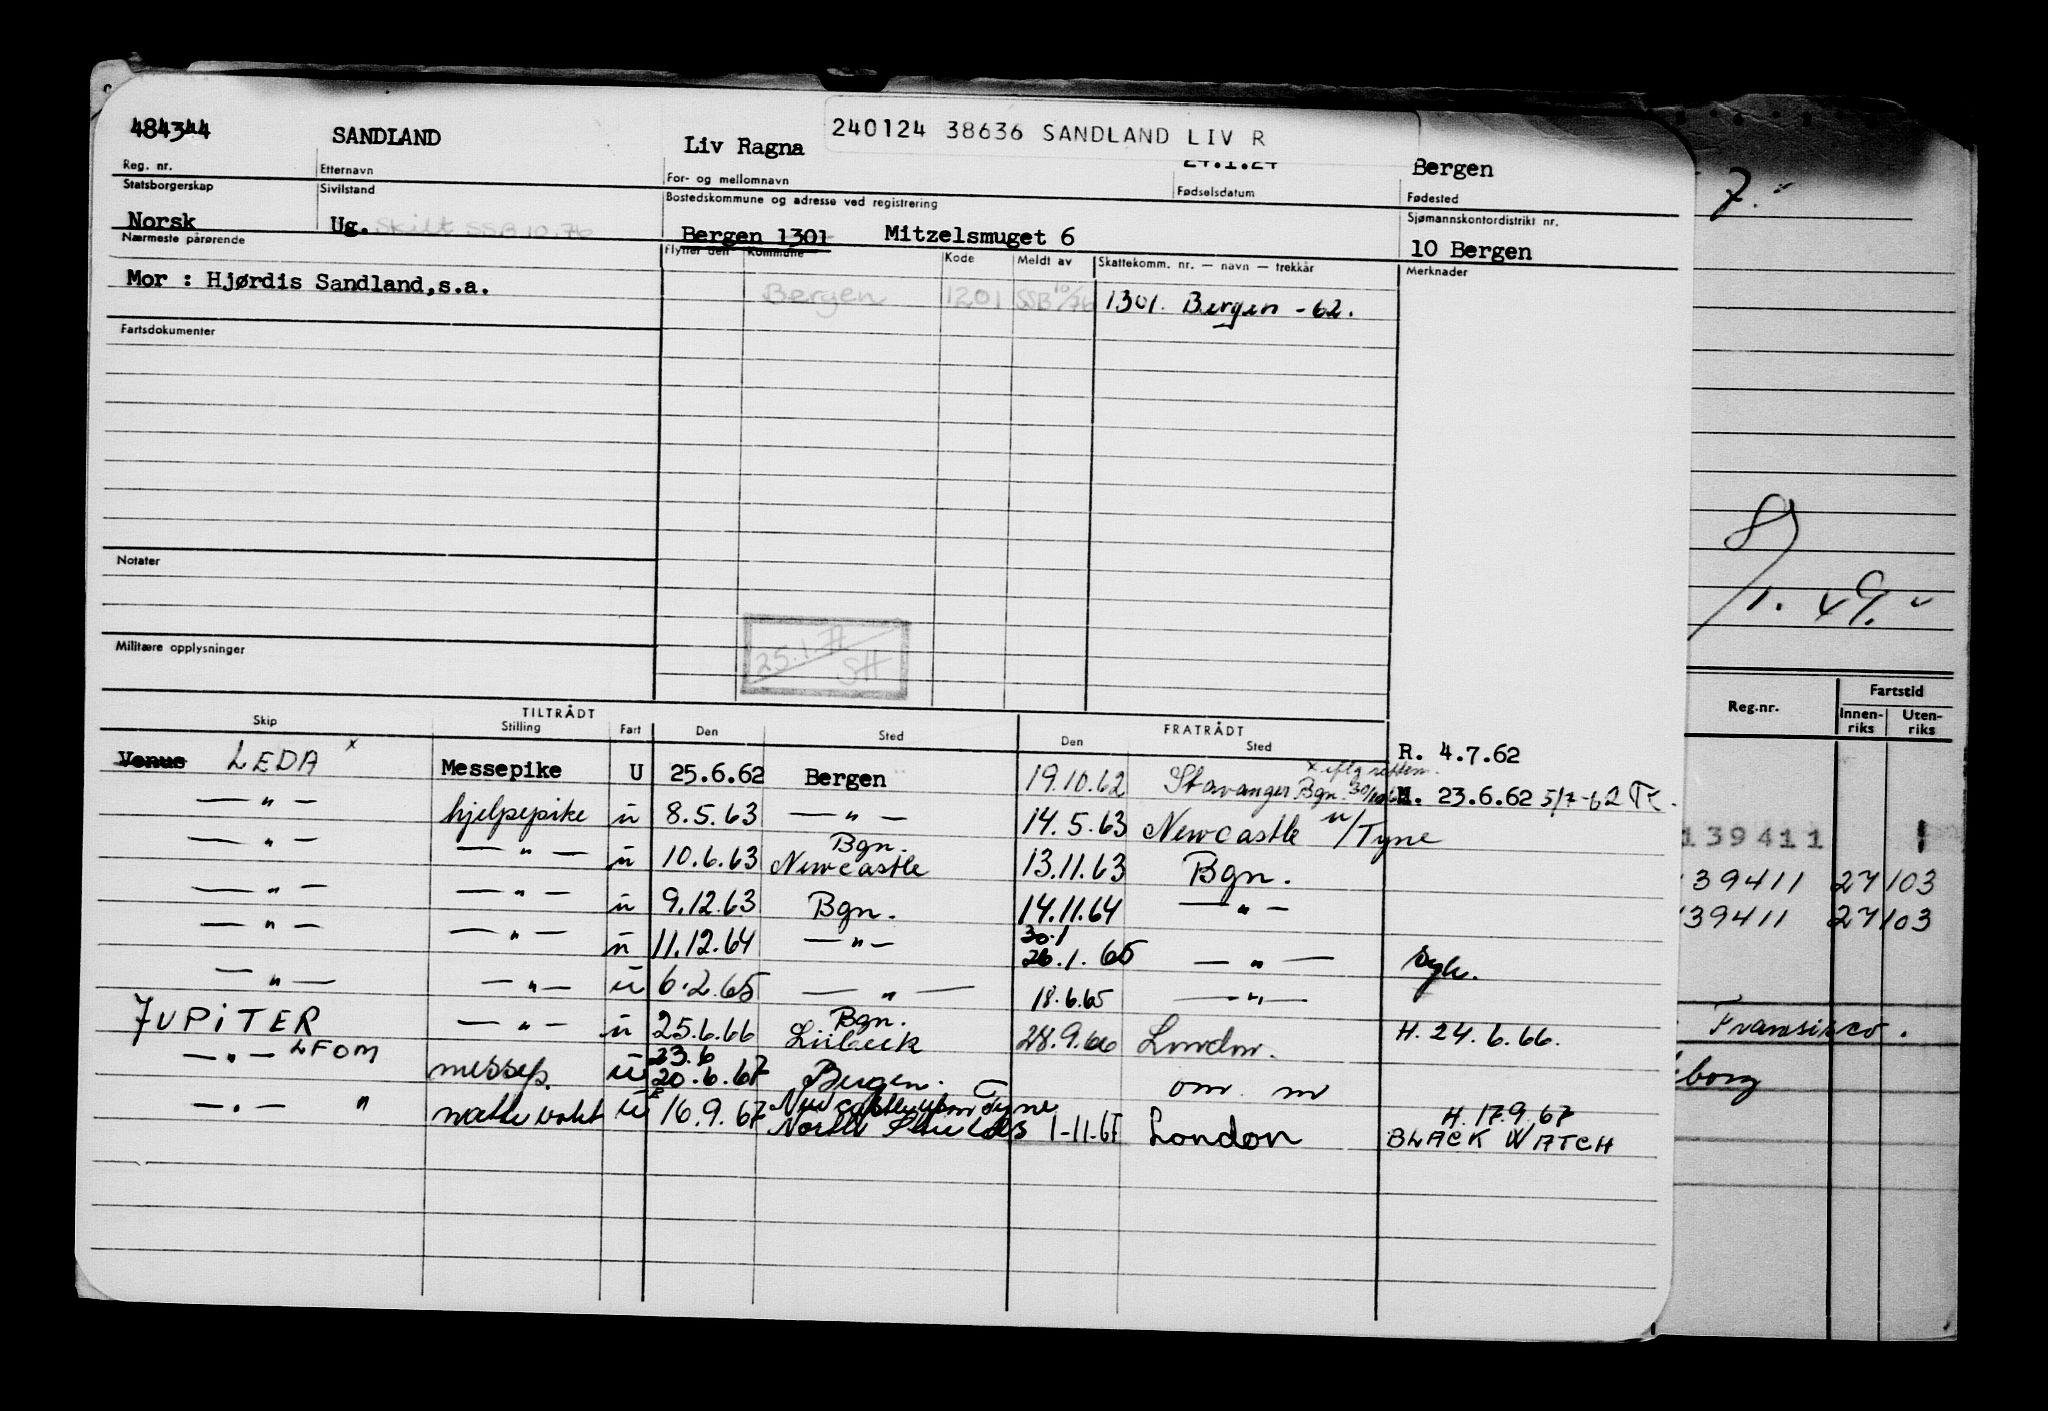 484344 SANDLAND Liv Ragna 240124 38636 SANDLAND LIV R
24.1.24 Bergen
Reg. nr. Etternavn For- og mellomnavn Fødselsdatum Fødested
Statsborgerskap Sivilstand Bostedskommune og adresse ved registrering Sjømannskontordistrikt nr.
Norsk Ug. Skilt SSB 10.76 Bergen 1301 Mitzelsmuget 6 10 Bergen
Nærmeste pårørende Flyttet den Kommune Kode Meldt av Skattekomm. nr. — navn — trekkår Merknader
Mor : Hjørdis Sandland,s.a. Bergen 1201 SSB 10/76 1301. Bergen - 62.
Fartsdokumenter
Notater
Militære opplysninger
25.1.77
SH
TILTRÅDT FRATRÅDT
Skip Stilling Fart Den Sted Den Sted
Venus LEDA x Messepike U 25.6.62 Bergen 19.10.62 Stavanger Bgn. R. 4.7.62
M. 23.6.62 5/7-62
— " — hjelpepike u 8.5.63 — " — 14.5.63 Newcastle u/Tyne
— " — — " — u 10.6.63 Bgn. Newcastle 13.11.63 Bgn.
— " — — " — u 9.12.63 Bgn. 14.11.64 — " —
— " — — " — u 11.12.64 — " — 30.1 26.1.65 — " — syk.
— " — — " — u 6.2.65 — " — 18.6.65 — " —
JUPITER — " — u 25.6.66 Bgn. Lübeck 28.9.66 London. H. 24.6.66.
— " — LFOM messep. u 23.6 20.6.67 Bergen. om. m
— " — " u 16.9.67 Newcastle upon Tyne North Shields 1-11-67 London H. 17.9.67
BLACK WATCH
7.
8/1. 49.
Reg.nr. Fartstid
Innenriks Utenriks
139411 1
139411 27 103
139411 27 103
Fransisco.
borg